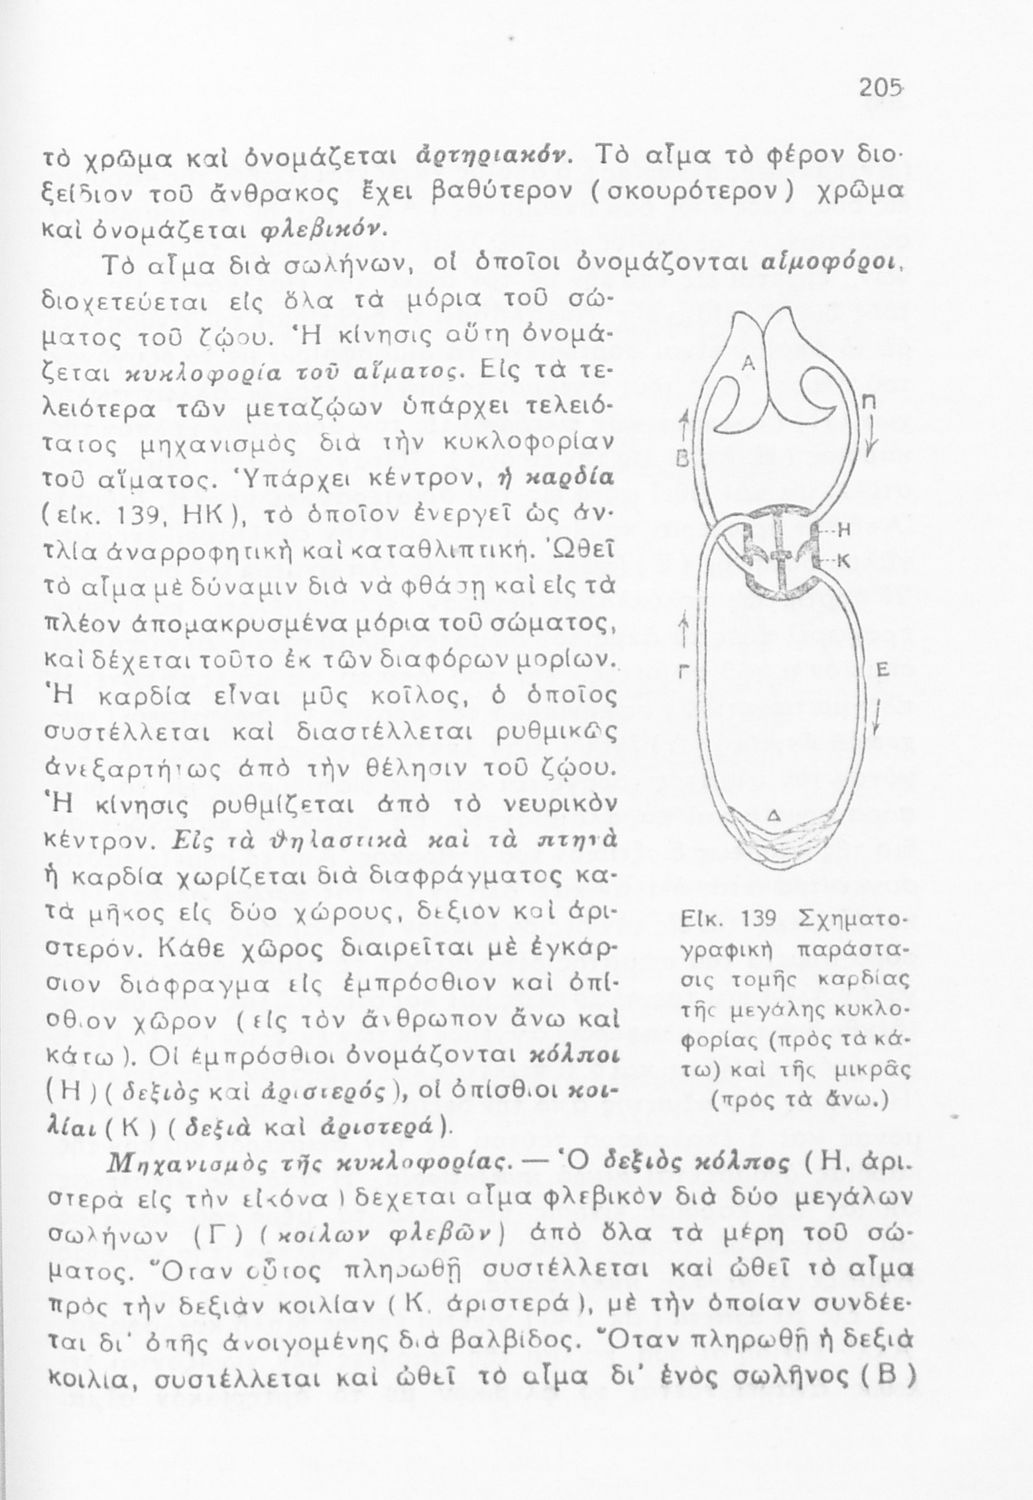 205
τὸ χρῶμα καὶ ὀνομάζεται ἀρτηριακόν. Τὸ αἷμα τὸ φέρον διο-
ξείδιον τοῦ ἄνθρακος ἔχει βαθύτερον (σκουρότερον) χρῶμα
καὶ ὀνομάζεται φλεβικόν.
Τὸ αἷμα διὰ σωλήνων, οἱ ὁποῖοι ὀνομάζονται αἱμοφόροι,
διοχετεύεται εἰς ὅλα τὰ μόρια τοῦ σώ-
ματος τοῦ ζῴου. Ἡ κίνησις αὕτη ὀνομά-
ζεται κυκλοφορία τοῦ αἵματος. Εἰς τὰ τε-
λειότερα τῶν μεταζῴων ὑπάρχει τελειό-
τατος μηχανισμὸς διὰ τὴν κυκλοφορίαν
τοῦ αἵματος. Ὑπάρχει κέντρον, ἡ καρδία
(εἰκ. 139, ΗΚ), τὸ ὁποῖον ἐνεργεῖ ὡς ἀν-
τλία ἀναρροφητικὴ καὶ καταθλιπτική. Ὠθεῖ
τὸ αἷμα μὲ δύναμιν διὰ νὰ φθάσῃ καὶ εἰς τὰ
πλέον ἀπομακρυσμένα μόρια τοῦ σώματος,
καὶ δέχεται τοῦτο ἐκ τῶν διαφόρων μορίων.
Ἡ καρδία εἶναι μῦς κοῖλος, ὁ ὁποῖος
συστέλλεται καὶ διαστέλλεται ρυθμικῶς
ἀνεξαρτήτως ἀπὸ τὴν θέλησιν τοῦ ζῴου.
Ἡ κίνησις ρυθμίζεται ἀπὸ τὸ νευρικὸν
κέντρον. Εἰς τὰ θηλαστικὰ καὶ τὰ πτηνὰ
ἡ καρδία χωρίζεται διὰ διαφράγματος κα-
τὰ μῆκος εἰς δύο χώρους, δεξιὸν καὶ ἀρι-
στερόν. Κάθε χῶρος διαιρεῖται μὲ ἐγκάρ-
σιον διάφραγμα εἰς ἐμπρόσθιον καὶ ὀπί-
σθιον χῶρον (εἰς τὸν ἄνθρωπον ἄνω καὶ
κάτω). Οἱ ἐμπρόσθιοι ὀνομάζονται κόλποι
(Η) (δεξιὸς καὶ ἀριστερός), οἱ ὀπίσθιοι κοι-
λίαι (Κ) (δεξιὰ καὶ ἀριστερά).
Α
Π
Β
Η
Κ
Γ
Ε
Δ
Εἰκ. 139 Σχηματο-
γραφικὴ παράστα-
σις τομῆς καρδίας
τῆς μεγάλης κυκλο-
φορίας (πρὸς τὰ κά-
τω) καὶ τῆς μικρᾶς
(πρὸς τὰ ἄνω.)
Μηχανισμὸς τῆς κυκλοφορίας. — Ὁ δεξιὸς κόλπος (Η, ἀρι.
στερὰ εἰς τὴν εἰκόνα) δέχεται αἷμα φλεβικὸν διὰ δύο μεγάλων
σωλήνων (Γ) (κοιλων φλεβῶν) ἀπὸ ὅλα τὰ μέρη τοῦ σώ-
ματος. Ὅταν οὗτος πληρωθῇ συστέλλεται καὶ ὠθεῖ τὸ αἷμα
πρὸς τὴν δεξιὰν κοιλίαν (Κ. ἀριστερά), μὲ τὴν ὁποίαν συνδέε-
ται δι' ὀπῆς ἀνοιγομένης διὰ βαλβίδος. Ὅταν πληρωθῇ ἡ δεξιὰ
κοιλία, συστέλλεται καὶ ὠθεῖ τὸ αἷμα δι' ἑνὸς σωλῆνος (Β)